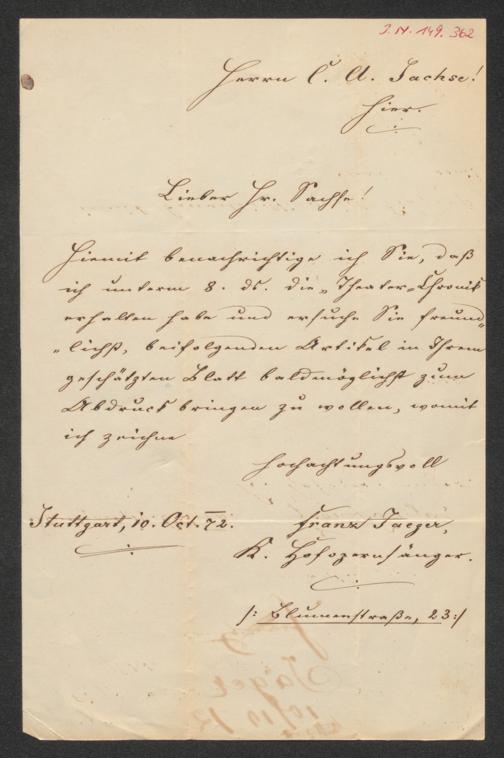 I. N. 149.362
Herrn C. A. Sachse!
Hier.
Lieber Hr. Sachse!
Hiemit benachrichtige ich Sie, daß
ich unterm 8. ds. die „Theater=Chronik
erhalten habe und ersuche Sie freund„
„lichst, beifolgenden Artikel in Ihrem
geschätzten Blatt baldmöglichst zum
Abdruck bringen zu wollen, womit
ich zeichne
Hochachtungsvoll
Stuttgart, 10. Oct. 72.
Franz Jaeger,
K. Hofopernsänger.
/: Blumenstraße, 23 :/